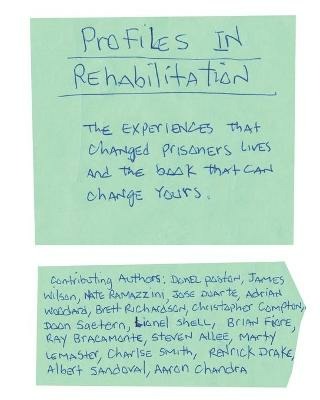 Profiles In
Rehabilitation
The experiences that
changed prisoners lives
and the book that can
change yours.
Contributing Authors: Donel Poston, James
Wilson, Nate Ramazzini, Jose Duarte, Adrian
Woodard, Brett Richardson, Christopher Compton,
Doan Saetern, Lionel Shell, Brian Fiore,
Ray Bracamonte, Steven Allee, Marty
Lemaster, Charlse Smith, Redrick Drake,
Albert Sandoval, Aaron Chandra